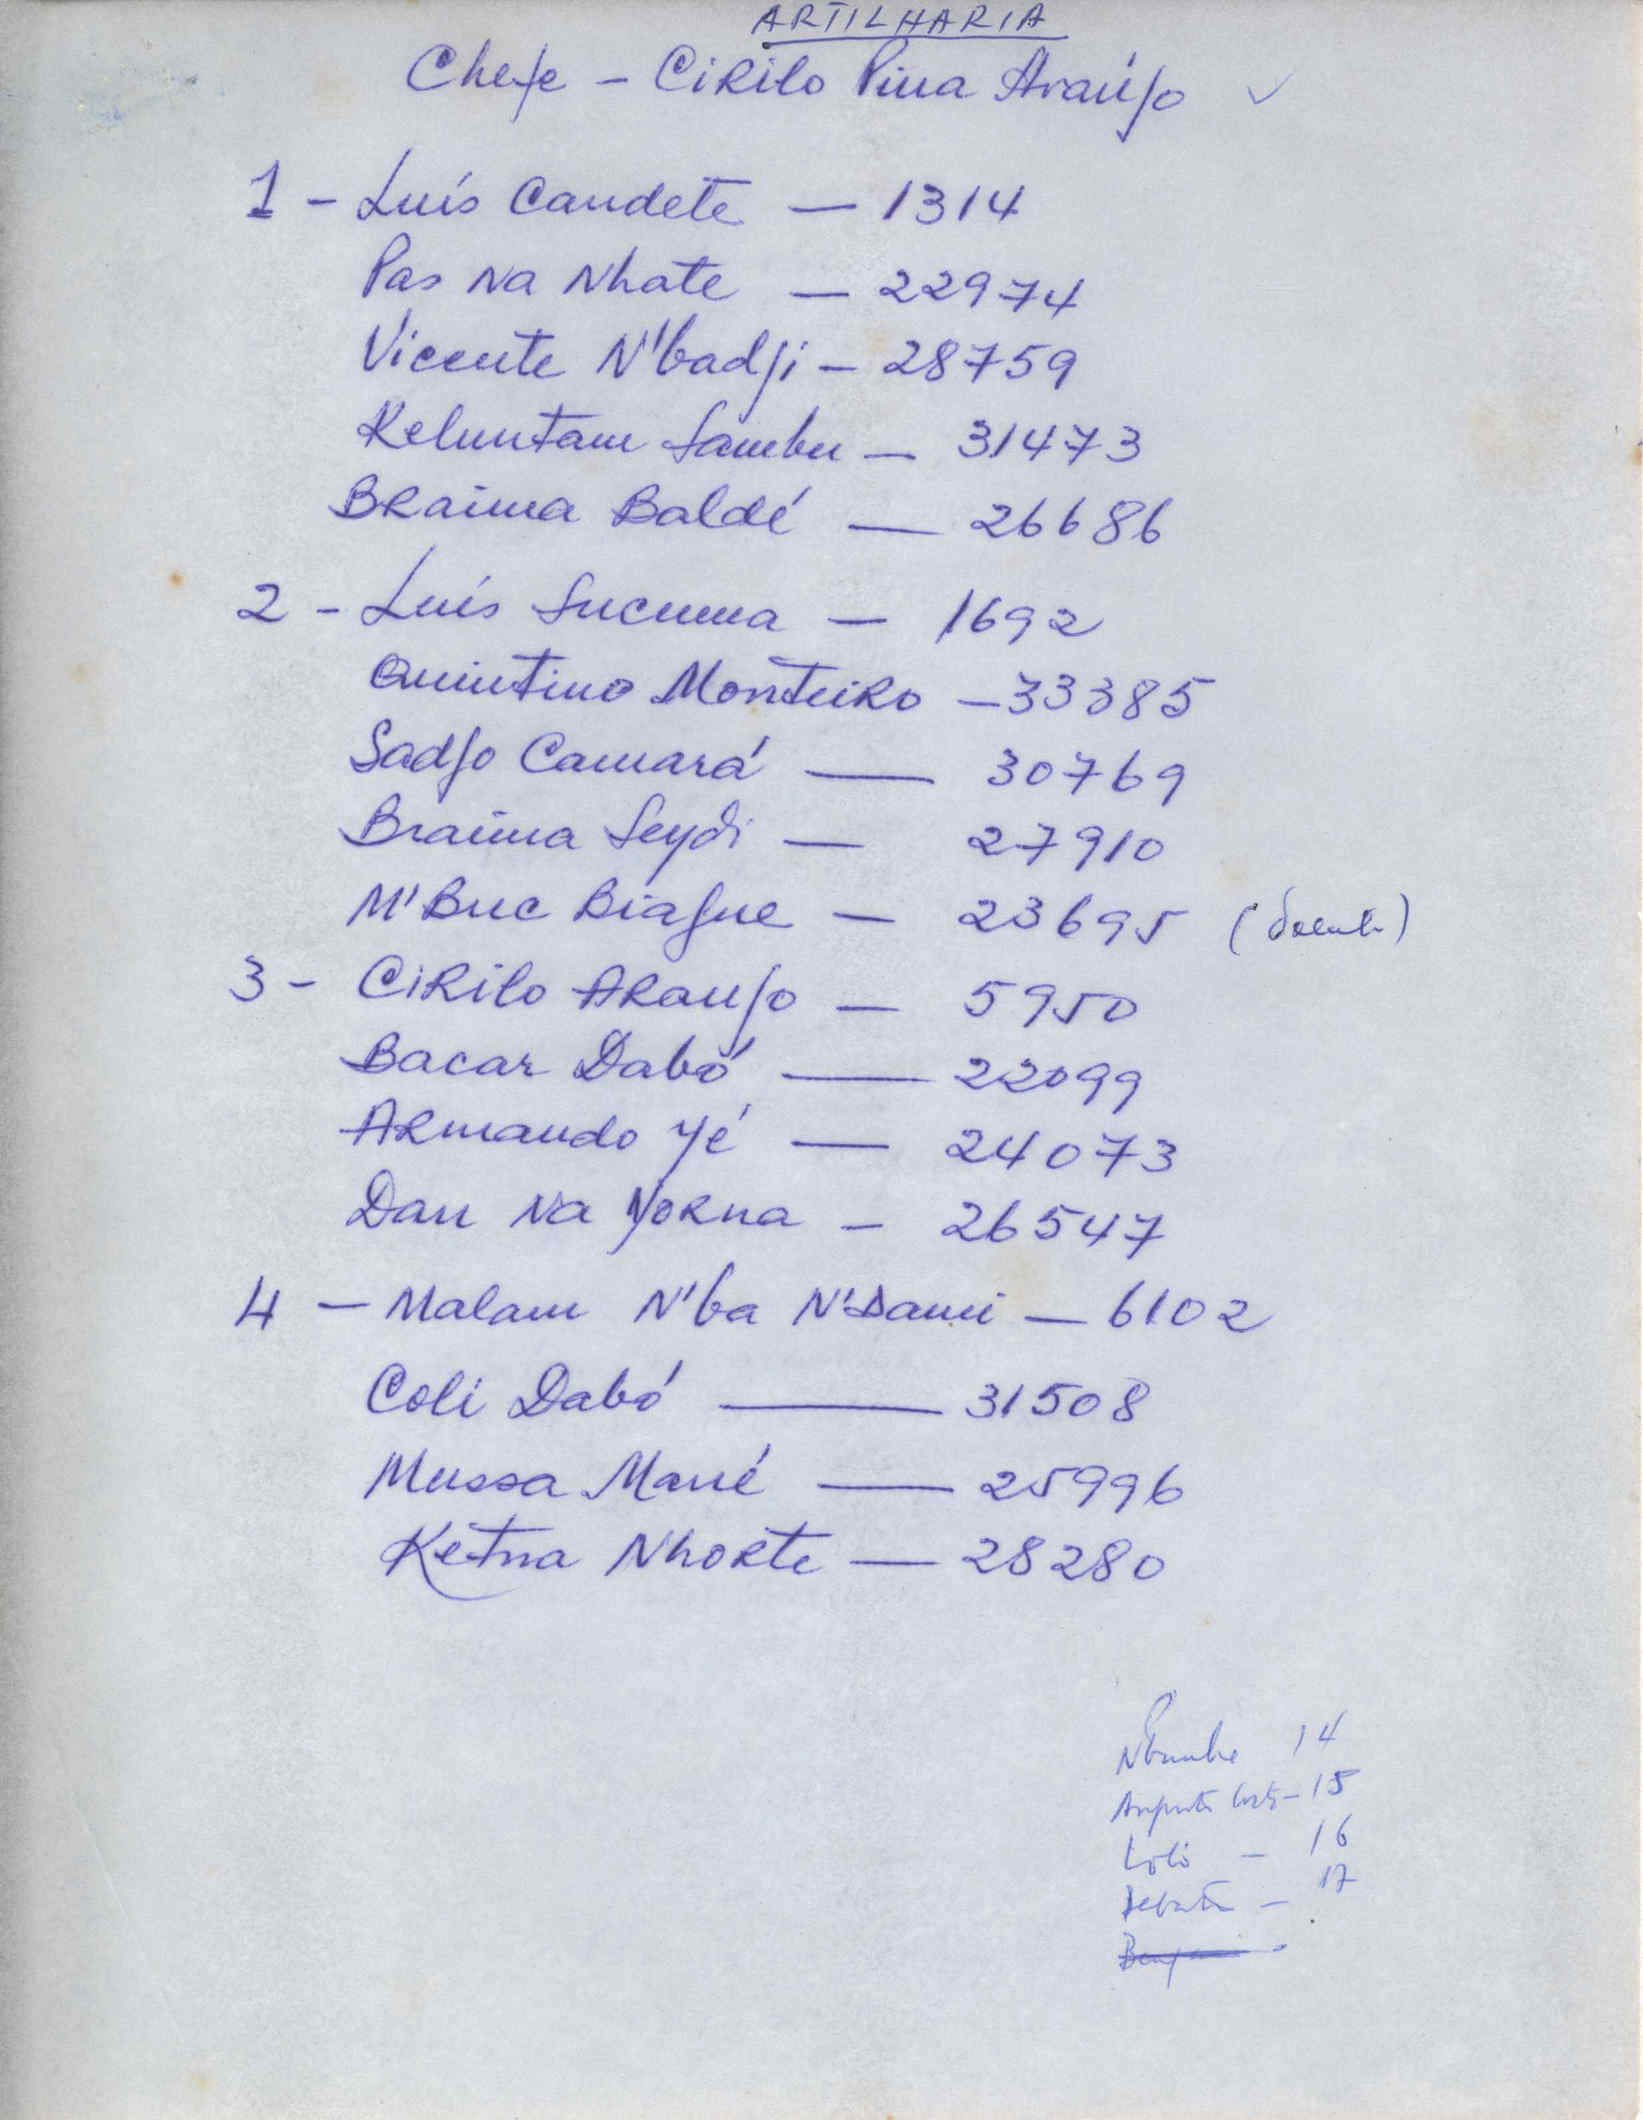 ARTILHARIA
Chefe - Cirilo Pina Araújo
1 - Luís Candete - 1314
Pas Na Nhate - 22974
Vicente N'badji - 28759
Keluntam Sambu - 31473
Braima Baldé - 26686
2 - Luís Sucuma - 1692
Quintino Monteiro - 33385
Sadjo Camará - 30769
Braima Seydi - 27910
M'Buc Biague - 23695 (doente)
3 - Cirilo Araujo - 5950
Bacar Dabó - 22099
Armando Yé - 24073
Dan Na Yorna - 26547
4 - Malam N'ba N'Dami - 6102
Coli Dabó - 31508
Mussa Mané - 25996
Ketna Nhorte - 28280
14
- 15
- 16
- 17